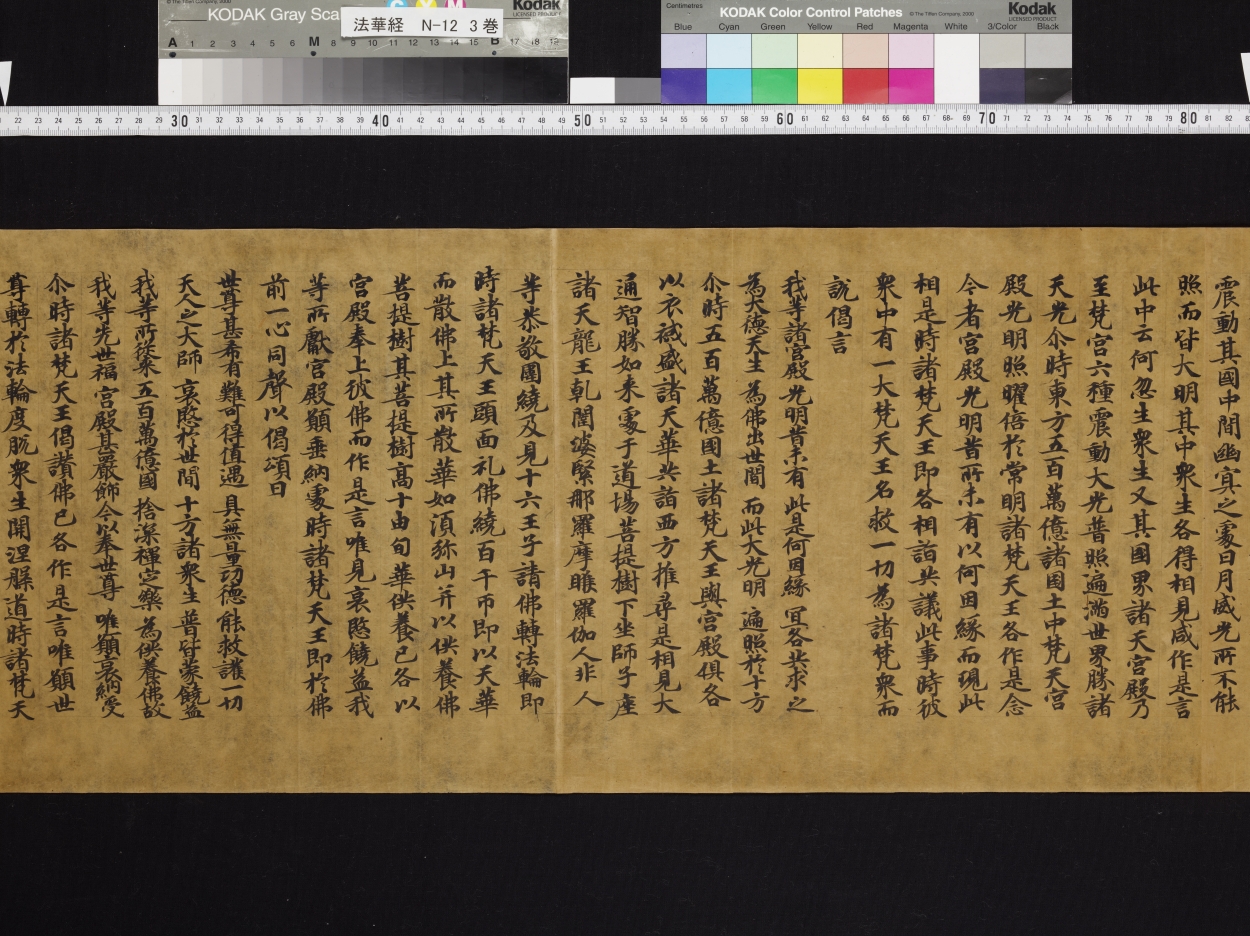 © The Tiffen Company, 2000
KODAK Gray Sca
Kodak
LICENSED PRODUCT
法華経 N-12 3巻
C Y M
A 1 2 3 4 5 6 M 8 9 10 11 12 13 14 15 B 17 18 19
Centimetres
KODAK Color Control Patches
© The Tiffen Company, 2000
Kodak
LICENSED PRODUCT
Blue Cyan Green Yellow Red Magenta White 3/Color Black
22 23 24 25 26 27 28 29 30 31 32 33 34 35 36 37 38 39 40 41 42 43 44 45 46 47 48 49 50 51 52 53 54 55 56 57 58 59 60 61 62 63 64 65 66 67 68 69 70 71 72 73 74 75 76 77 78 79 80 81 82
震動其國中間幽冥之處日月威光所不能
照而皆大明其中衆生各得相見咸作是言
此中云何忽生衆生又其國界諸天宮殿乃
至梵宮六種震動大光普照遍滿世界勝諸
天光尒時東方五百萬億諸國土中梵天宮
殿光明照曜倍於常明諸梵天王各作是念
今者宮殿光明昔所未有以何因緣而現此
相是時諸梵天王即各相詣共議此事時彼
衆中有一大梵天王名救一切為諸梵衆而
説偈言
我等諸宮殿光明昔未有 此是何因緣 宜各共求之
為大德天生 為佛出世間 而此大光明 遍照於十方
尒時五百萬億國土諸梵天王與宮殿俱各
以衣祴盛諸天華共詣西方推尋是相見大
通智勝如来處于道場菩提樹下坐師子座
諸天龍王乹闥婆緊那羅摩睺羅伽人非人
等恭敬圍繞及見十六王子請佛轉法輪即
時諸梵天王頭面礼佛繞百千帀即以天華
而散佛上其所散華如須弥山并以供養佛
菩提樹其菩提樹高十由旬華供養已各以
宮殿奉上彼佛而作是言唯見哀愍饒益我
等所獻宮殿願垂納處時諸梵天王即於佛
前一心同聲以偈頌曰
世尊甚希有難可得值遇 具無量功德能救護一切
天人之大師 哀愍於世間 十方諸衆生 普皆蒙饒益
我等所從来 五百萬億國 捨深禪定樂 為供養佛故
我等先世福 宮殿甚嚴飾 今以奉世尊 唯願哀納受
尒時諸梵天王偈讃佛已各作是言唯願世
尊轉於法輪度脱衆生開涅槃道時諸梵天